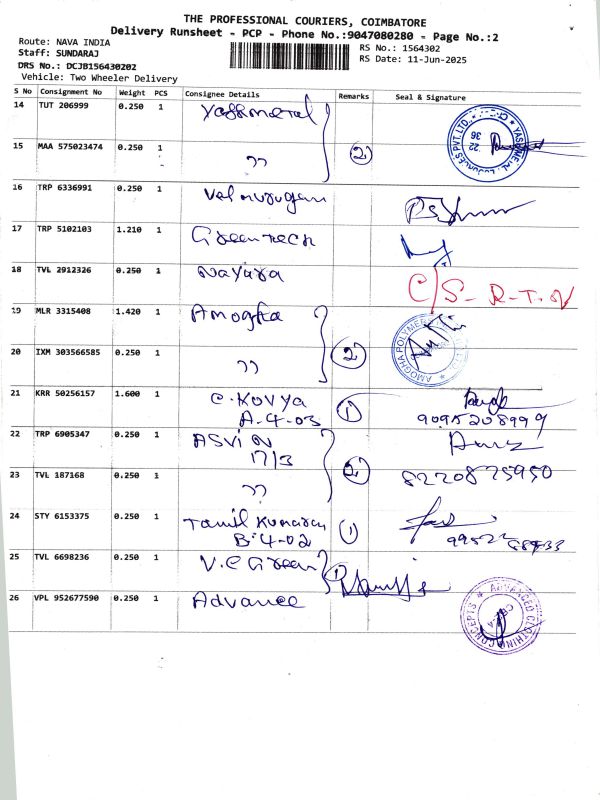 THE PROFESSIONAL COURIERS, COIMBATORE
Delivery Runsheet - PCP - Phone No.:9047080280 - Page No.:2
Route: NAVA INDIA
RS No.: 1564302
Staff: SUNDARAJ
RS Date: 11-Jun-2025
DRS No.: DCJB156430202
Vehicle: Two Wheeler Delivery
S No Consignment No Weight PCS Consignee Details Remarks Seal & Signature
14 TUT 206999 0.250 1 Yashmetal
15 MAA 575023474 0.250 1 " 2
16 TRP 6336991 0.250 1 Velmurugan
17 TRP 5102103 1.210 1 Greentech
18 TVL 2912326 0.250 1 Nayara C/S-R-T-N
19 MLR 3315408 1.420 1 Amogha
20 IXM 303566585 0.250 1 " 2
21 KRR 50256157 1.600 1 C.Kovya 1
A.4-03 9095208999
22 TRP 6905347 0.250 1 ASVIN
17/3
23 TVL 187168 0.250 1 " 2 8220875950
24 STY 6153375 0.250 1 Tamil Kumaran 1
B.4-02
25 TVL 6698236 0.250 1 V.C Green 1
26 VPL 952677590 0.250 1 Advance